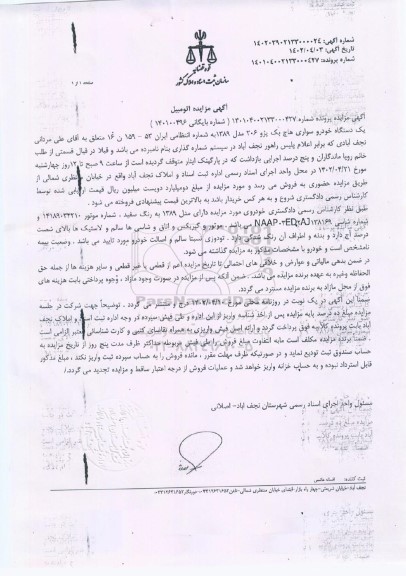 شماره آگهی: ۱۴۰۲۰۳۹۰۲۱۳۳۰۰۰۰۲۴
تاریخ آگهی: ۱۴۰۲/۰۴/۰۳
شماره پرونده: ۱۴۰۱۰۴۰۰۲۱۳۳۰۰۰۴۲۷
قوه قضائیه
سازمان ثبت اسناد و املاک کشور
آگهی مزایده اتومبیل
آگهی مزایده پرونده شماره ۱۴۰۱۰۴۰۰۲۱۳۳۰۰۰۴۲۷ ( شماره بایگانی ۱۴۰۱۰۰۴۹۶ )
یک دستگاه خودرو سواری هاچ بک پژو ۲۰۶ مدل ۱۳۸۹ به شماره انتظامی ایران ۵۳ – ۱۵۹ ن ۱۶ متعلق به آقای علی مردانی
نجف آبادی که برابر اعلام پلیس راهور نجف آباد در سیستم شماره گذاری بنام نامبرده می باشد و قبلا در قبال قسمتی از طلب
خانم رویا ماندگاران و پنج درصد اجرایی بازداشت که در پارکینگ ایثار متوقف گردیده است از ساعت ۹ صبح تا ۱۲ روز چهارشنبه
مورخ ۱۴۰۲/۰۴/۲۱ در محل واحد اجرای اسناد رسمی اداره ثبت اسناد و املاک نجف آباد واقع در خیابان منتظری شمالی از
طریق مزایده حضوری به فروش می رسد و مورد مزایده از مبلغ دومیلیارد دویست میلیون ریال قیمت ارزیابی شده توسط
کارشناس رسمی دادگستری شروع و به هر کس خریدار باشد به بالاترین قیمت پیشنهادی فروخته می شود .
طبق نظر کارشناس رسمی دادگستری خودروی مورد مزایده دارای مدل ۱۳۸۹ به رنگ سفید ، شماره موتور
شماره شاسی می باشد . موتور و گیربکس و اتاق و شاسی ها سالم و لاستیک ها بالای شصت
درصد آج دارد و بدنه و اطراف آن رنگ شدگی دارد . تودوزی نسبتا سالم و اصالت خودرو مورد تایید می باشد . وضعیت بیمه
نامشخص است و خودرو با مشخصات مذکور به مزایده گذاشته می شود.
در ضمن بدهی مالیاتی و عوارض و خلافی های احتمالی تا تاریخ مزایده اعم از قطعی یا غیر قطعی و سایر هزینه ها از جمله حق
الحفاظه وغیره به عهده برنده مزایده می باشد . ضمن آنکه پس از مزایده در صورت وجود مازاد ، وجوه پرداختی بابت هزینه های
فوق از محل مازاد به برنده مزایده مسترد می گردد.
ضمنا این آگهی در یک نوبت در روزنامه محلی مورخ درج و منتشر می گردد . توضیحاً جهت شرکت در جلسه
مزایده مبلغ ده درصد پایه مزایده پس از اخذ شناسه واریز از این اداره و طی فیش سپرده در وجه اداره ثبت اسناد و املاک نجف
آباد بابت پرونده کلاسه فوق پرداخت گردد و ارائه اصل فیش واریزی به همراه تقاضای کتبی و کارت شناسائی معتبر الزامی است
. ضمنا برنده مزایده مکلف است مابه التفاوت مبلغ فروش را طی فیش مربوطه حداکثر ظرف مدت پنج روز از تاریخ مزایده به
حساب صندوق ثبت تودیع نماید و در صورتیکه ظرف مهلت مقرر ، مانده فروش را به حساب سپرده ثبت واریز نکند ، مبلغ مذکور
قابل استرداد نبوده و به حساب خزانه واریز خواهد شد و عملیات فروش از درجه اعتبار ساقط و مزایده تجدید می گردد./
مسئول واحد اجرای اسناد رسمی شهرستان نجف آباد- اصلانی